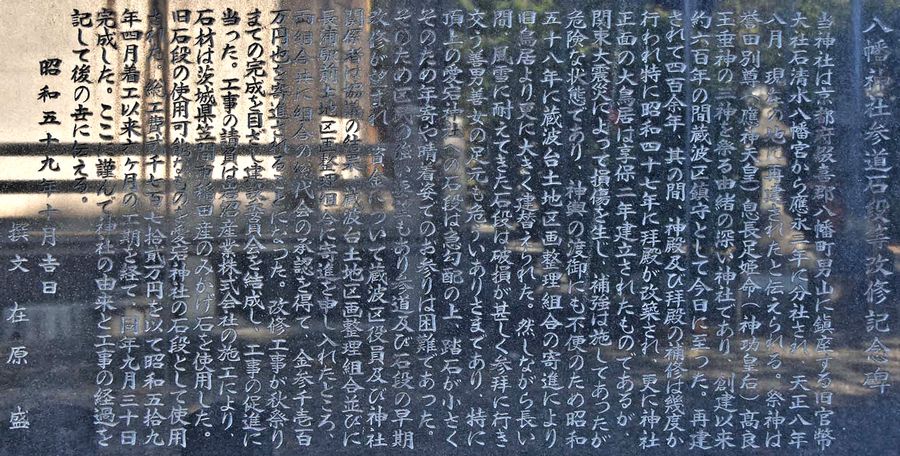 八幡神社参道石段等改修記念碑
当神社は京都府綴喜郡八幡町男山に鎮座する旧官幣
大社石清水八幡宮から應永三年に分社され、天正八年
八月 現在の地に再建されたと伝えられる。祭神は
誉田別尊(應神天皇)息長足姫命(神功皇后)高良
玉垂神の三神を祭る由緒の深い神社であり 創建以来
約六百年の間蔵波区鎮守として今日に至った。再建
されて四百余年 其の間 神殿及び拝殿の補修は幾度か
行われ特に昭和四十七年に拝殿が改築され 更に神社
正面の大鳥居は享保二年建立されたものであるが
関東大震災によって損傷を生じ 補強は施してあったが
危険な状態であり、神輿の渡御にも不便のため昭和
五十八年に蔵波台土地区画整理組合の寄進により
旧鳥居より更に大きく建替えられた。然しながら長い
間 風雪に耐えてきた石段は破損が甚しく参拝に行き
交う善男善女の足元も危ういありさまであり、特に
頂上の愛宕神社への石段は急勾配の上 踏石が小さく
そのため年寄や晴着姿でのお参りは困難であった。
そのため区民の強い要望もあり参道及び石段の早期
改修が望まれ 資金について蔵波区役員及び神社
関係者は協議の結果 蔵波台土地区画整理組合並びに
長浦駅前土地区画整理組合に寄進を申し入れたところ、
両組合共に組合の総代会の承認を得て 金参千壱百
万円也を寄進されることになった。改修工事が秋祭り
までの完成を目ざし建設委員会を結成し、工事の促進に
当った。工事の請負は岩沼産業株式会社の施工により、
石材は茨城県笠間市稲田産のみかげ石を使用した。
旧石段の使用可能なものを愛宕神社の石段として使用
された。総工費弐千七百七拾弐万円を以て昭和五拾九
年四月着工以来六ヶ月の工期を経て 同年九月三十日
完成した。ここに謹んで神社の由来と工事の経過を
記して後の世に伝える。
昭和五十九年十月吉日
撰文 在原 盛